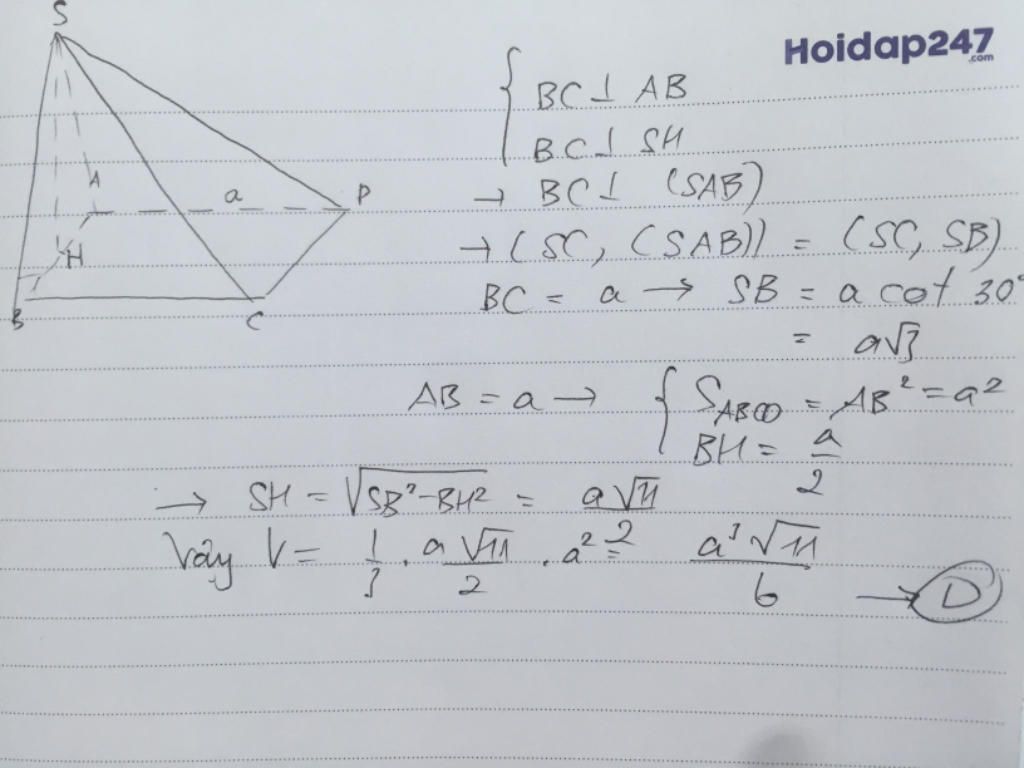 Hoidap247
.com
S
A
a
D
H
B
C
{ BC ⊥ AB
BC ⊥ SH
→ BC ⊥ (SAB)
→ (SC, (SAB)) = (SC, SB)
BC = a → SB = a cot 30°
= a√3
AB = a → { S_ABCD = AB² = a²
BH = a/2
→ SH = √(SB² - BH²) = a√11/2
Vậy V = 1/3 . a√11/2 . a² = a³√11/6
→ D